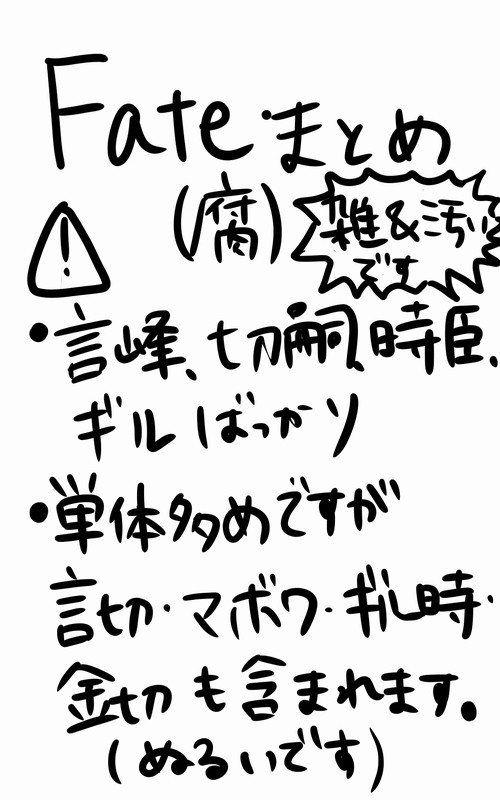 Fateまとめ
(腐)
雑&汚い
です
!
・言峰、切嗣、時臣、
ギルばっかり
・単体多めですが
言切・マボワ・ギル時・
金切も含まれます。
(ぬるいです)